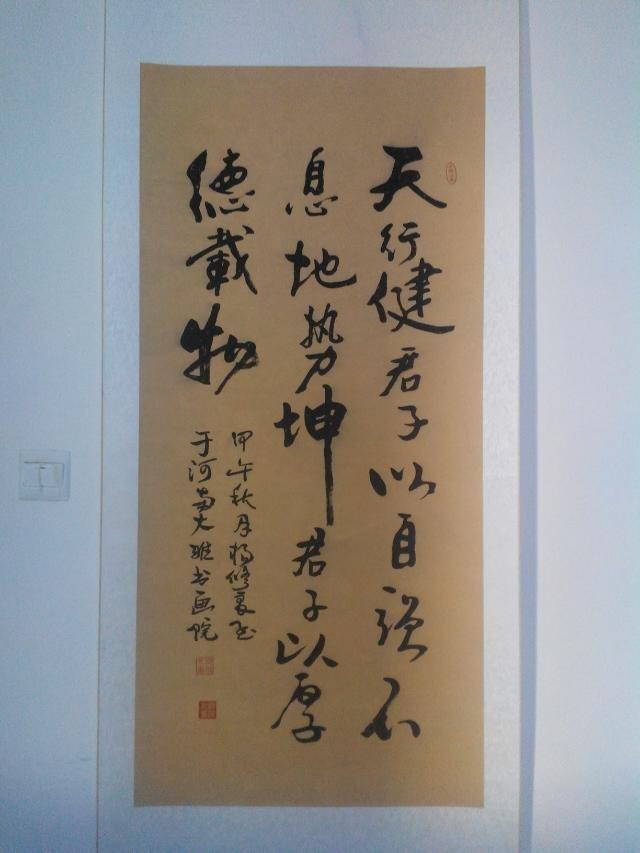 天行健君子以自强不
息地势坤君子以厚
德载物
甲午秋月杨修夏书
于河南大雅书画院